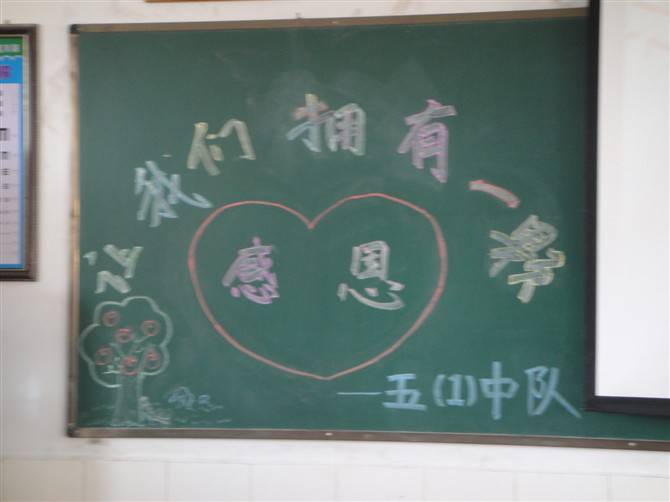 让我们拥有一颗
感恩
——五(1)中队